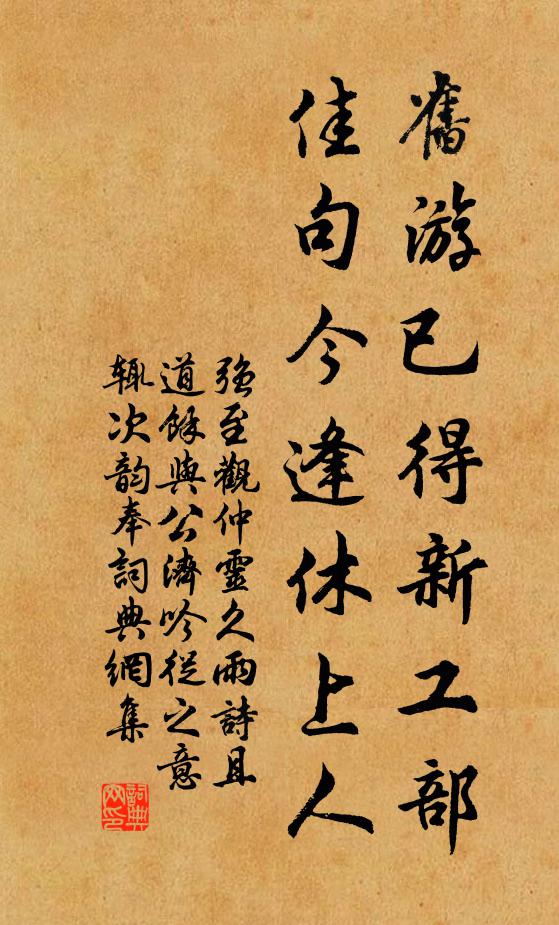 舊游已得新工部
佳句今逢休上人
強至觀仲靈久雨詩且
道餘與公濟吟從之意
輒次韵奉詞典網集
詞典网印